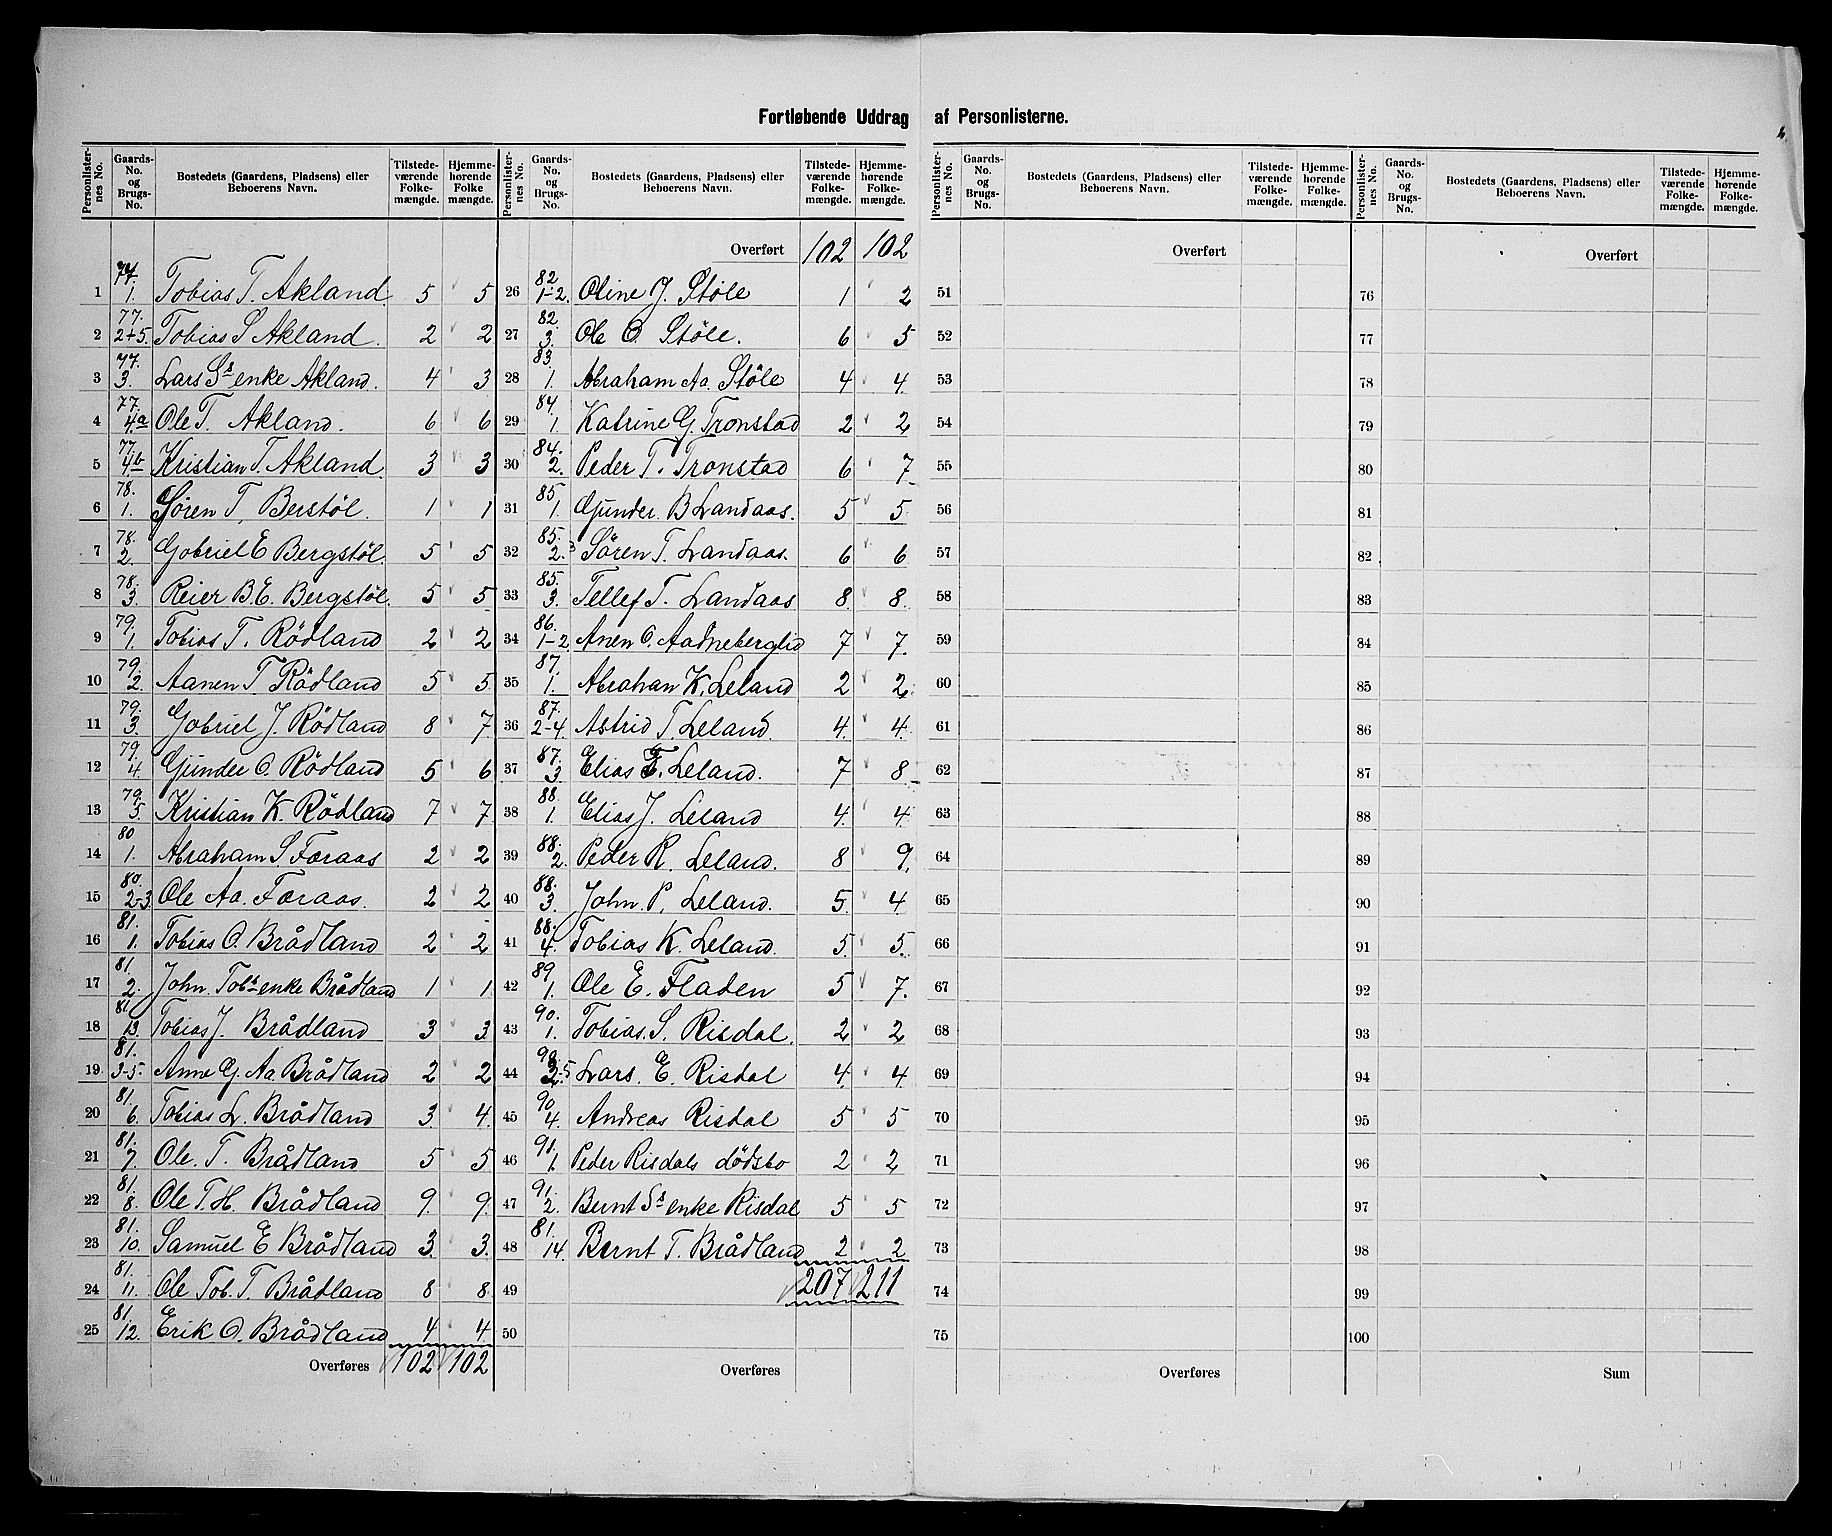 Fortløbende Uddrag af Personlisterne.
Personlisternes No. Gaards-No. og Brugs-No. Bostedets (Gaardens, Pladsens) eller Beboerens Navn. Tilstedeværende Folkemængde. Hjemmehørende Folkemængde.
1 77. 1. Tobias T. Akland 5 5
2 77. 2+5. Tobias S Akland. 2 2
3 77. 3. Lars Ss enke Akland. 4 3
4 77. 4a Ole T. Akland. 6 6
5 77. 4b Kristian T. Akland 3 3
6 78. 1. Søren T. Berstøl. 1 1
7 78. 2. Gabriel E Bergstøl. 5 5
8 78. 3. Reier B.E. Bergstøl. 5 5
9 79. 1. Tobias T. Rödland 2 2
10 79. 2. Aanen T. Rödland 5 5
11 79. 3. Gabriel J. Rödland 8 7
12 79. 4. Gunder O. Rödland 5 6
13 79. 5. Kristian K. Rödland 7 7
14 80 1. Abraham S. Foraas 2 2
15 80. 2-3 Ole Aa. Foraas. 2 2
16 81. 1. Tobias O. Brådland 2 2
17 81. 2. John Tobs enke Brådland 1 1
18 81. 13. Tobias J. Brådland 3 3
19 81. 3-5. Anne G. Aa. Brådland 2 2
20 81. 6. Tobias L. Brådland 3 4.
21 81. 7. Ole. T. Brådland 5 5
22 81. 8. Ole T.H. Brådland 9. 9.
23 81. 10. Samuel E Brådland 3. 3.
24 81. 11. Ole Tob. T. Brådland 8 8.
25 81. 12. Erik O. Brådland 4 4.
Overføres 102 102
Personlisternes No. Gaards-No. og Brugs-No. Bostedets (Gaardens, Pladsens) eller Beboerens Navn. Tilstedeværende Folkemængde. Hjemmehørende Folkemængde.
Overført 102 102
26 82 1-2. Oline J. Støle 1 2
27 82 3. Ole O. Støle. 6 5
28 83. 1. Abraham Aa. Støle 4 4.
29 84. 1. Katrine G. Tronstad 2 2
30 84. 2. Peder T. Tronstad 6 7
31 85. 1. Gunder B Landaas. 5 5.
32 85. 2. Søren T. Landaas. 6 6
33 85. 3. Tellef T. Landaas 8. 8.
34 86. 1-2 Anen O. Aadneberglid 7 7.
35 87. 1. Abraham K. Leland 2 2
36 87. 2-4 Astrid T. Leland. 4. 4.
37 87. 3 Elias T. Leland. 7 8
38 88. 1. Elias J. Leland 4. 4
39 88. 2. Peder R. Leland. 8 9.
40 88. 3. John. P. Leland. 5. 4.
41 88. 4. Tobias K. Leland. 5. 5.
42 89. 1. Ole E. Fladen 5 7.
43 90. 1. Tobias. S. Risdal. 2 2
44 90. 5 Lars. E. Risdal 4. 4
45 90. 4. Andreas Risdal 5 5
46 91. 1. Peder Risdals dödsbo 2 2
47 91. 2. Bernt Ss enke Risdal 5 5
48 81. 14. Bernt T. Brådland 2 2
49 207 211
50
Overføres
Personlisternes No. Gaards-No. og Brugs-No. Bostedets (Gaardens, Pladsens) eller Beboerens Navn. Tilstedeværende Folkemængde. Hjemmehørende Folkemængde.
Overført
51
52
53
54
55
56
57
58
59
60
61
62
63
64
65
66
67
68
69
70
71
72
73
74
75
Overføres
Personlisternes No. Gaards-No. og Brugs-No. Bostedets (Gaardens, Pladsens) eller Beboerens Navn. Tilstedeværende Folkemængde. Hjemmehørende Folkemængde.
Overført
76
77
78
79
80
81
82
83
84
85
86
87
88
89
90
91
92
93
94
95
96
97
98
99
100
Sum